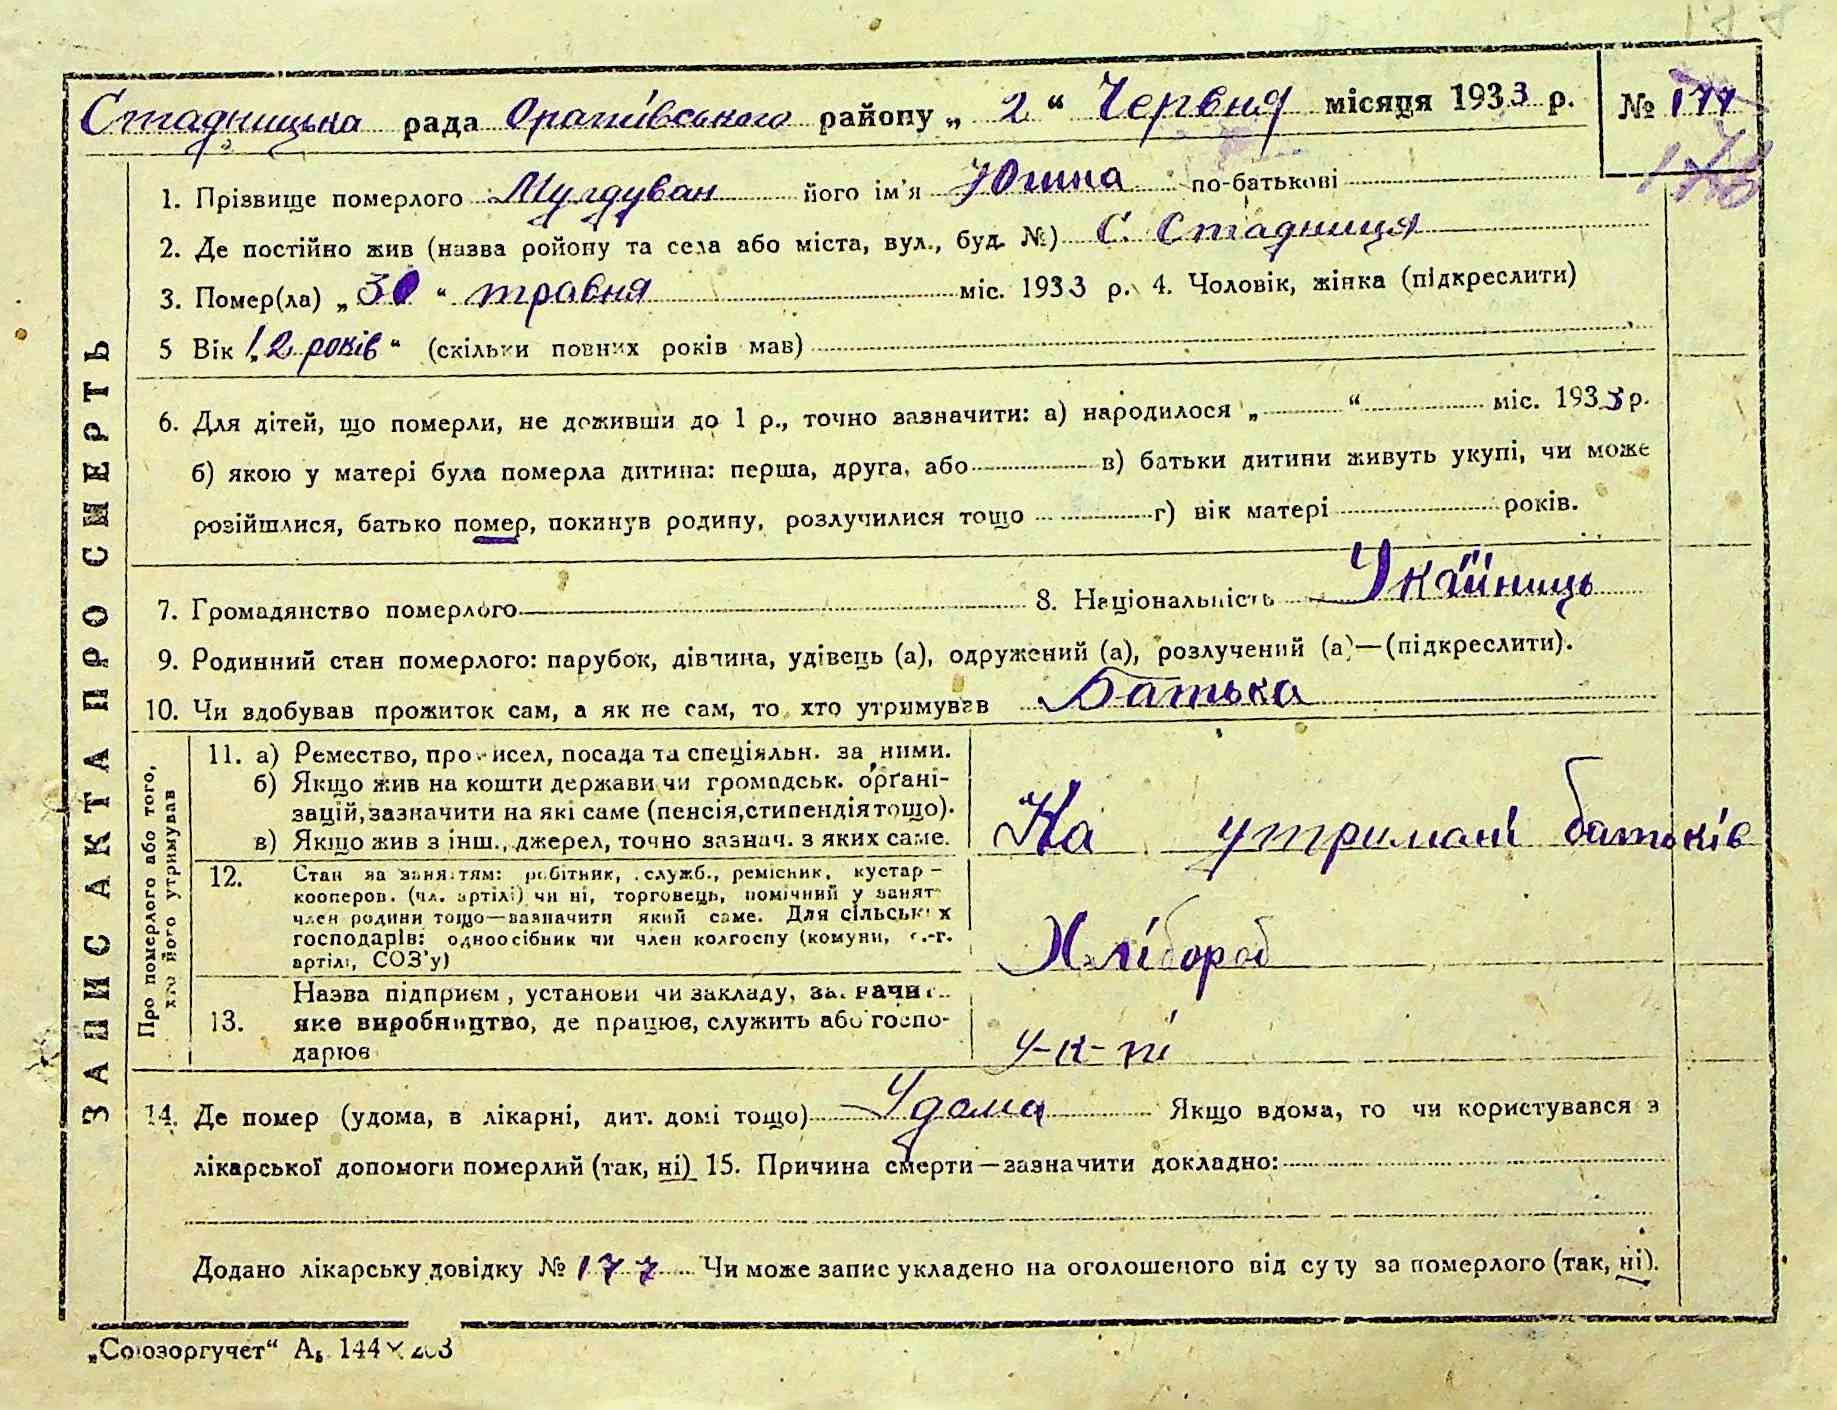 Стадницька рада Оратівського району „ 2 “ Червня місяця 1933 р. № 177
178
1. Прізвище померлого Мулдуван його ім'я Югина по-батькові
2. Де постійно жив (назва ройону та села або міста, вул., буд. №) С. Стадниця
3. Помер(ла) „ 30 “ травня міс. 1933 р. 4. Чоловік, жінка (підкреслити)
5 Вік „12 років“ (скільки повних років мав)
6. Для дітей, що померли, не доживши до 1 р., точно зазначити: а) народилося „ “ міс. 1933 р.
б) якою у матері була померла дитина: перша, друга, або в) батьки дитини живуть укупі, чи може
розійшлися, батько помер, покинув родину, розлучилися тощо г) вік матері років.
7. Громадянство померлого 8. Національність Укаїниць
9. Родинний стан померлого: парубок, дівчина, удівець (а), одружений (а), розлучений (а)—(підкреслити).
10. Чи здобував прожиток сам, а як не сам, то хто утримував Батька
ЗАПИС АКТА ПРО СМЕРТЬ
Про померлого або того,
хто його утримував
11. а) Ремество, промисел, посада та спеціяльн. за ними.
б) Якщо жив на кошти держави чи громадськ. орґані-
зацій, зазначити на які саме (пенсія, стипендія тощо).
в) Якщо жив з інш., джерел, точно зазнач. з яких саме.
На утримані батьків
12. Стан за заняттям: робітник, служб., ремісник, кустар –
кооперов. (чл. артілі) чи ні, торговець, помічний у занят
член родини тощо—зазначити який саме. Для сільських
господарів: одноосібник чи член колгоспу (комуни, с.-г.
артілі, СОЗ'у)
Хлібороб
Назва підприєм, установи чи закладу, зазначит
13. яке виробництво, де працює, служить або госпо-
дарює
у-к-ті
14. Де помер (удома, в лікарні, дит. домі тощо) Удома Якщо вдома, то чи користувався з
лікарської допомоги померлий (так, ні) 15. Причина смерти—зазначити докладно:
Додано лікарську довідку № 177 Чи може запис укладено на оголошеного від суду за померлого (так, ні).
„Союзоргучет“ А₅ 144×203